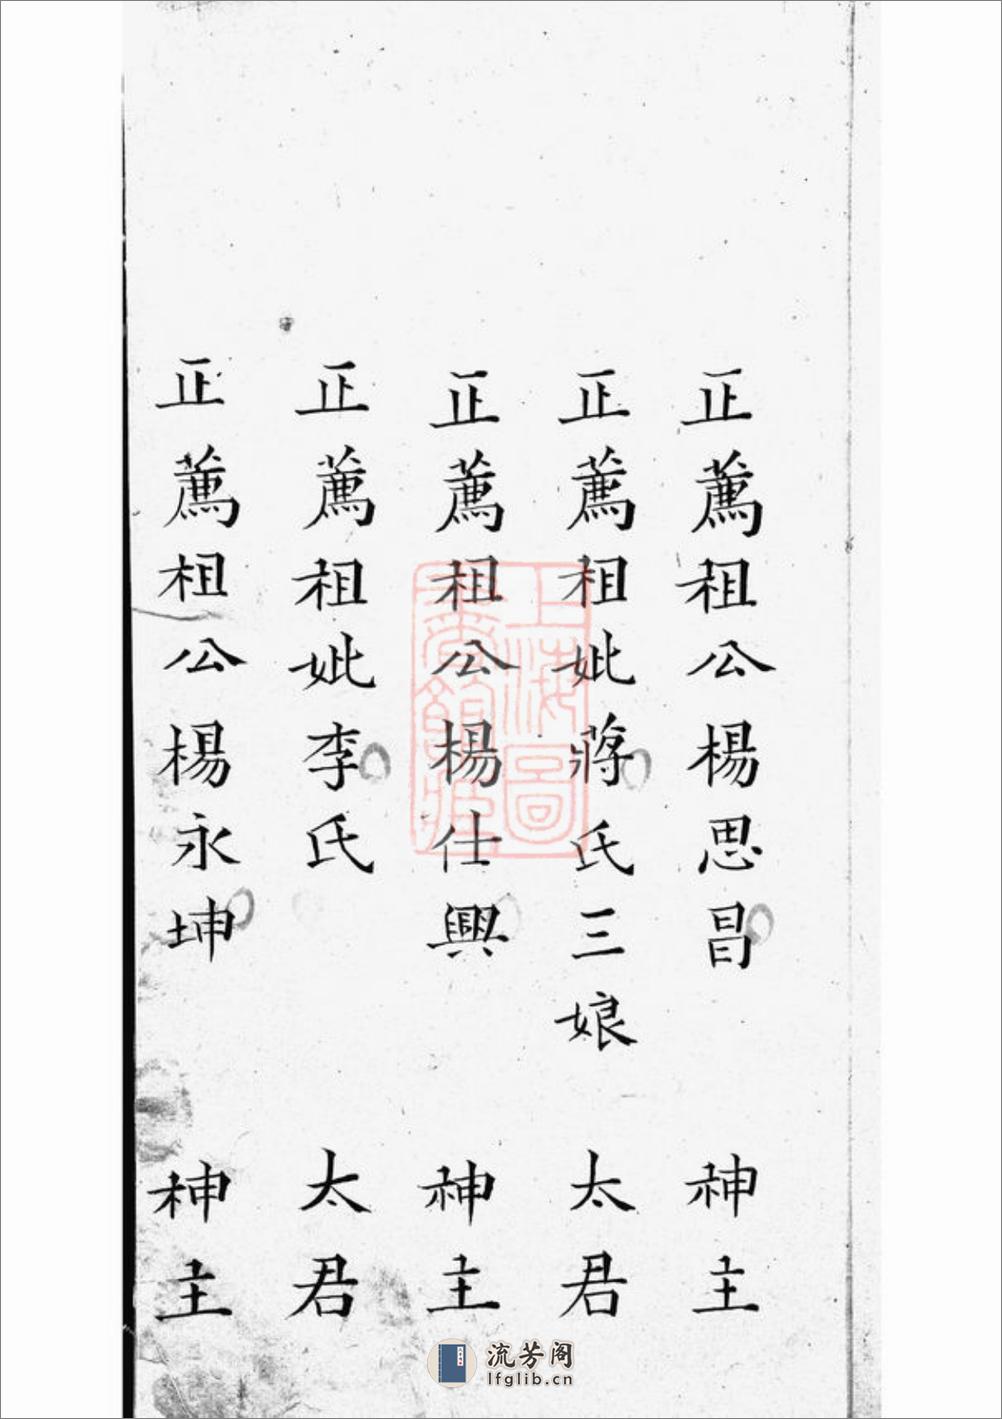 正薦祖公楊思昌 神主
正薦祖妣蔣氏三娘 太君
正薦祖公楊仕興 神主
正薦祖妣李氏 太君
正薦祖公楊永坤 神主
上海圖
書館藏
流芳阁
lfglib.cn